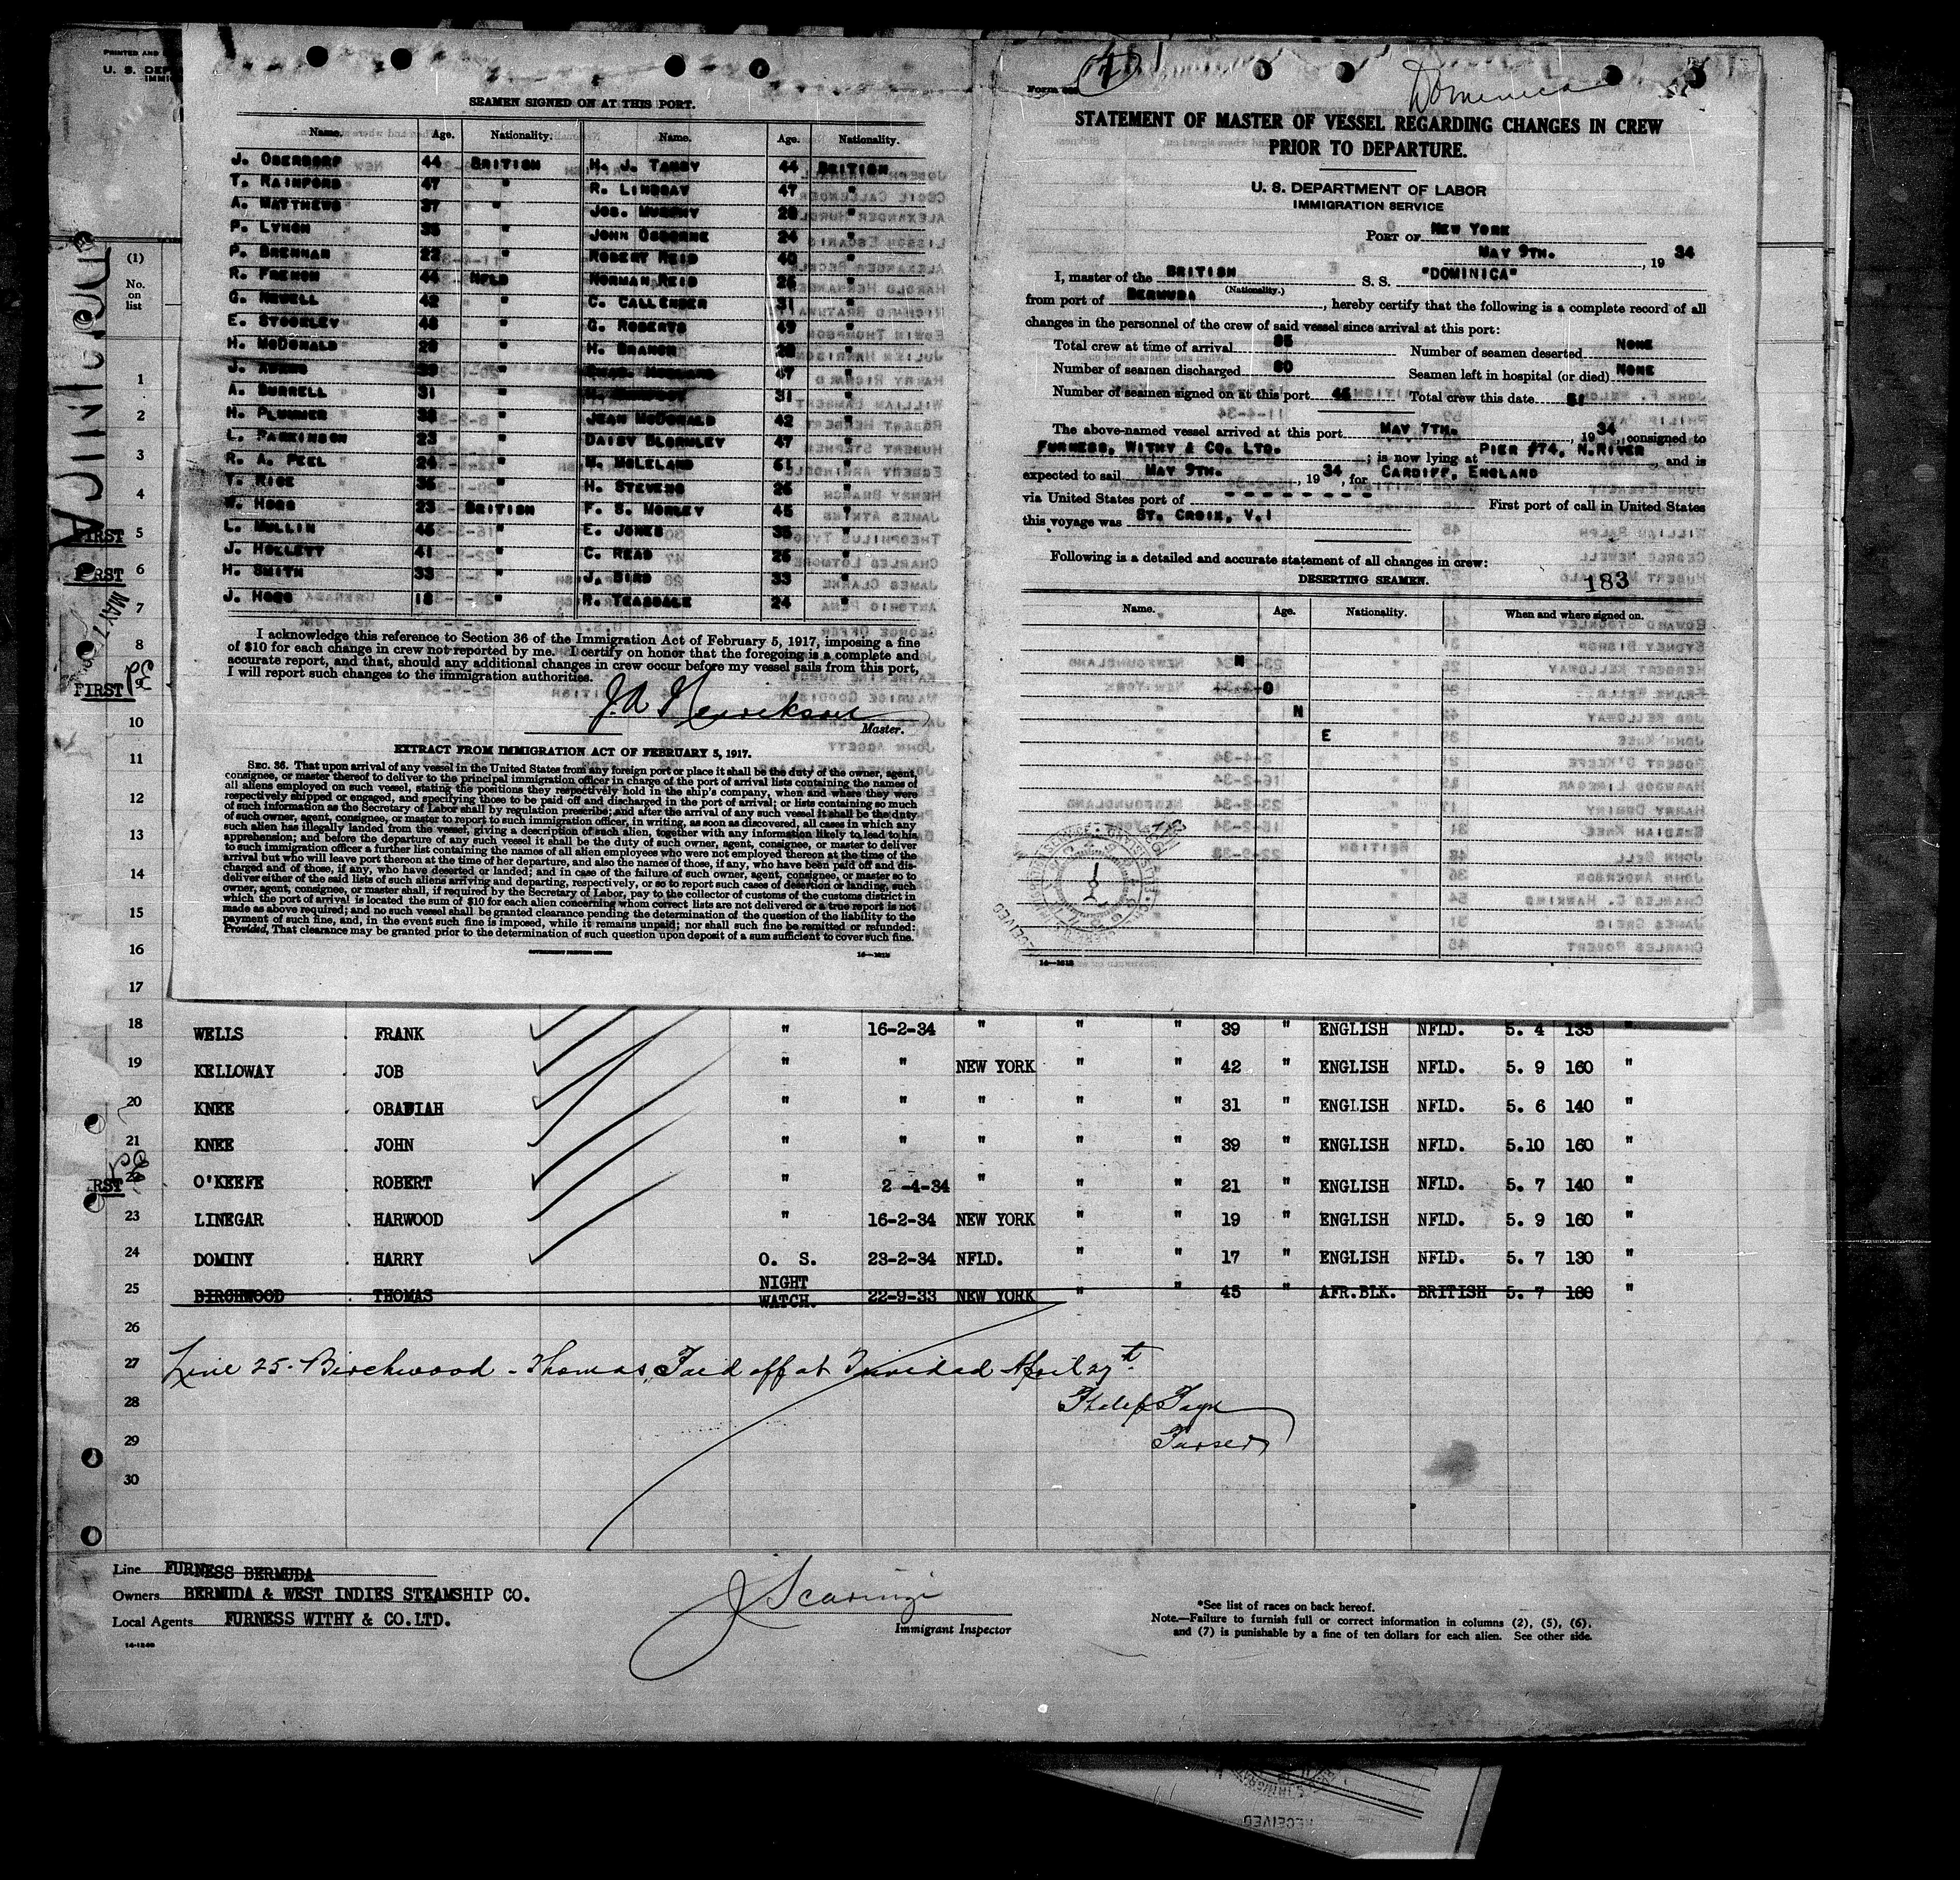 PRINTED AND
U. S. DEP
IMMIG
DOMINICA
SEAMEN SIGNED ON AT THIS PORT.
Name. Age. Nationality. Name. Age. Nationality.
J. OBERDORF 44 BRITISH H. J. TANDY 44 BRITISH
T. RAINFORD 47 " R. LINDSAY 47 "
A. MATTHEWS 37 " JOS. MURPHY "
P. LYNCH " JOHN OSBORNE 24 "
P. BRENNAN 22 " ROBERT REID 40 "
R. FRENCH 44 NFLD NORMAN REID "
G. NEWELL 42 " C. CALLENDER 31 "
E. STOCKLEY " G. ROBERTS 49 "
H. MCDONALD " H. BRANCH "
J. 47 "
A. BURRELL 31 " 31 "
H. PLUMMER " JEAN MCDONALD 42 "
L. PARKINSON 23 " DAISY 47 "
R. A. PEEL 24 " M. MCLELAND "
T. RICE " H. STEVENS "
W. HOGG 23 BRITISH F. S. MORLEY 45 "
L. MULLIN " E. JONES "
J. HOLLETT 41 " C. READ "
H. SMITH 33 " J. BIRD 33 "
J. HOGG 18 " R. TEASDALE 24 "
I acknowledge this reference to Section 36 of the Immigration Act of February 5, 1917, imposing a fine
of $10 for each change in crew not reported by me. I certify on honor that the foregoing is a complete and
accurate report, and that, should any additional changes in crew occur before my vessel sails from this port,
I will report such changes to the immigration authorities.
Master.
EXTRACT FROM IMMIGRATION ACT OF FEBRUARY 5, 1917.
SEC. 36. That upon arrival of any vessel in the United States from any foreign port or place it shall be the duty of the owner, agent,
consignee, or master thereof to deliver to the principal immigration officer in charge of the port of arrival lists containing the names of
all aliens employed on such vessel, stating the positions they respectively hold in the ship's company, when and where they were
respectively shipped or engaged, and specifying those to be paid off and discharged in the port of arrival; or lists containing so much
of such information as the Secretary of Labor shall by regulation prescribe; and after the arrival of any such vessel it shall be the duty
of such owner, agent, consignee, or master to report to such immigration officer, in writing, as soon as discovered, all cases in which any
such alien has illegally landed from the vessel, giving a description of such alien, together with any information likely to lead to his
apprehension; and before the departure of any such vessel it shall be the duty of such owner, agent, consignee, or master to deliver
to such immigration officer a further list containing the names of all alien employees who were not employed thereon at the time of the
arrival but who will leave port thereon at the time of her departure, and also the names of those, if any, who have been paid off and dis-
charged and of those, if any, who have deserted or landed; and in case of the failure of such owner, agent, consignee, or master so to
deliver either of the said lists of such aliens arriving and departing, respectively, or so to report such cases of desertion or landing, such
owner, agent, consignee, or master shall, if required by the Secretary of Labor, pay to the collector of customs of the customs district in
which the port of arrival is located the sum of $10 for each alien concerning whom correct lists are not delivered or a true report is not
made as above required; and no such vessel shall be granted clearance pending the determination of the question of the liability to the
payment of such fine, and, in the event such fine is imposed, while it remains unpaid; nor shall such fine be remitted or refunded:
Provided, That clearance may be granted prior to the determination of such question upon deposit of a sum sufficient to cover such fine.
GOVERNMENT PRINTING OFFICE
Dominica
STATEMENT OF MASTER OF VESSEL REGARDING CHANGES IN CREW
PRIOR TO DEPARTURE.
U. S. DEPARTMENT OF LABOR
IMMIGRATION SERVICE
PORT OF NEW YORK
MAY 9TH. , 19 34
I, master of the BRITISH S. S. "DOMINICA"
(Nationality.)
from port of BERMUDA , hereby certify that the following is a complete record of all
changes in the personnel of the crew of said vessel since arrival at this port:
Total crew at time of arrival Number of seamen deserted NONE
Number of seamen discharged Seamen left in hospital (or died) NONE
Number of seamen signed on at this port Total crew this date
The above-named vessel arrived at this port MAY 7TH. , 19 34, consigned to
FURNESS, WITHY & CO. LTD. ; is now lying at PIER #74, N.RIVER , and is
expected to sail MAY 9TH. , 19 34, for CARDIFF, ENGLAND
via United States port of - - - - - - - First port of call in United States
this voyage was ST. CROIX, V.I
Following is a detailed and accurate statement of all changes in crew:
183
DESERTING SEAMEN.
Name. Age. Nationality. When and where signed on.
N
O
N
E
(1)
No.
on
list
1
2
3
4
FIRST 5
FIRST 6
7
8
FIRST
10
11
12
13
14
15
16
17
18 WELLS FRANK " 16-2-34 " " " 39 " ENGLISH NFLD. 5. 4 135 "
19 KELLOWAY JOB " " NEW YORK " " 42 " ENGLISH NFLD. 5. 9 160 "
20 KNEE OBADIAH " " " " " 31 " ENGLISH NFLD. 5. 6 140 "
21 KNEE JOHN " " " " " 39 " ENGLISH NFLD. 5.10 160 "
22 O'KEEFE ROBERT " 2 -4-34 " " " 21 " ENGLISH NFLD. 5. 7 140 "
23 LINEGAR HARWOOD " 16-2-34 NEW YORK " " 19 " ENGLISH NFLD. 5. 9 160 "
24 DOMINY HARRY O. S. 23-2-34 NFLD. " " 17 " ENGLISH NFLD. 5. 7 130 "
25 BIRCHWOOD THOMAS NIGHT WATCH. 22-9-33 NEW YORK " " 45 " AFR.BLK. BRITISH 5. 7 180 "
26
27 Line 25 - Birchwood - Thomas, Paid off at Trinidad April 27th
28
29 Purser
30
Line FURNESS BERMUDA
Owners BERMUDA & WEST INDIES STEAMSHIP CO.
Local Agents FURNESS WITHY & CO.LTD.
14-1240
Immigrant Inspector
*See list of races on back hereof.
Note.—Failure to furnish full or correct information in columns (2), (5), (6),
and (7) is punishable by a fine of ten dollars for each alien. See other side.